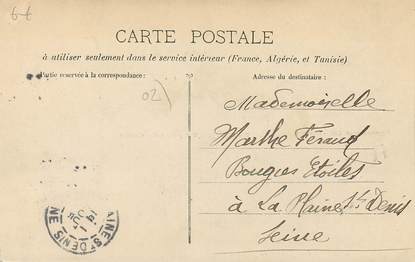 CARTE POSTALE
à utiliser seulement dans le service intérieur (France, Algérie, et Tunisie)
Partie réservée à la correspondance:
Adresse du destinataire:
02)
Mademoiselle
Marthe Féraud
Bougies Etoiles
à La Plaine St Denis
Seine
INE ST DENIS
NE